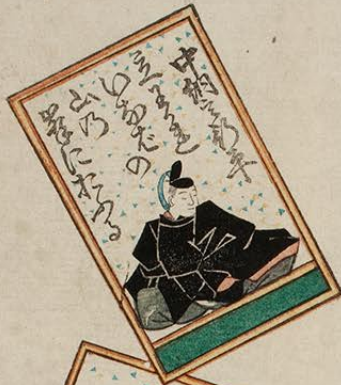 中納言行平
立わかれ
いなばの
山乃
峯におふる